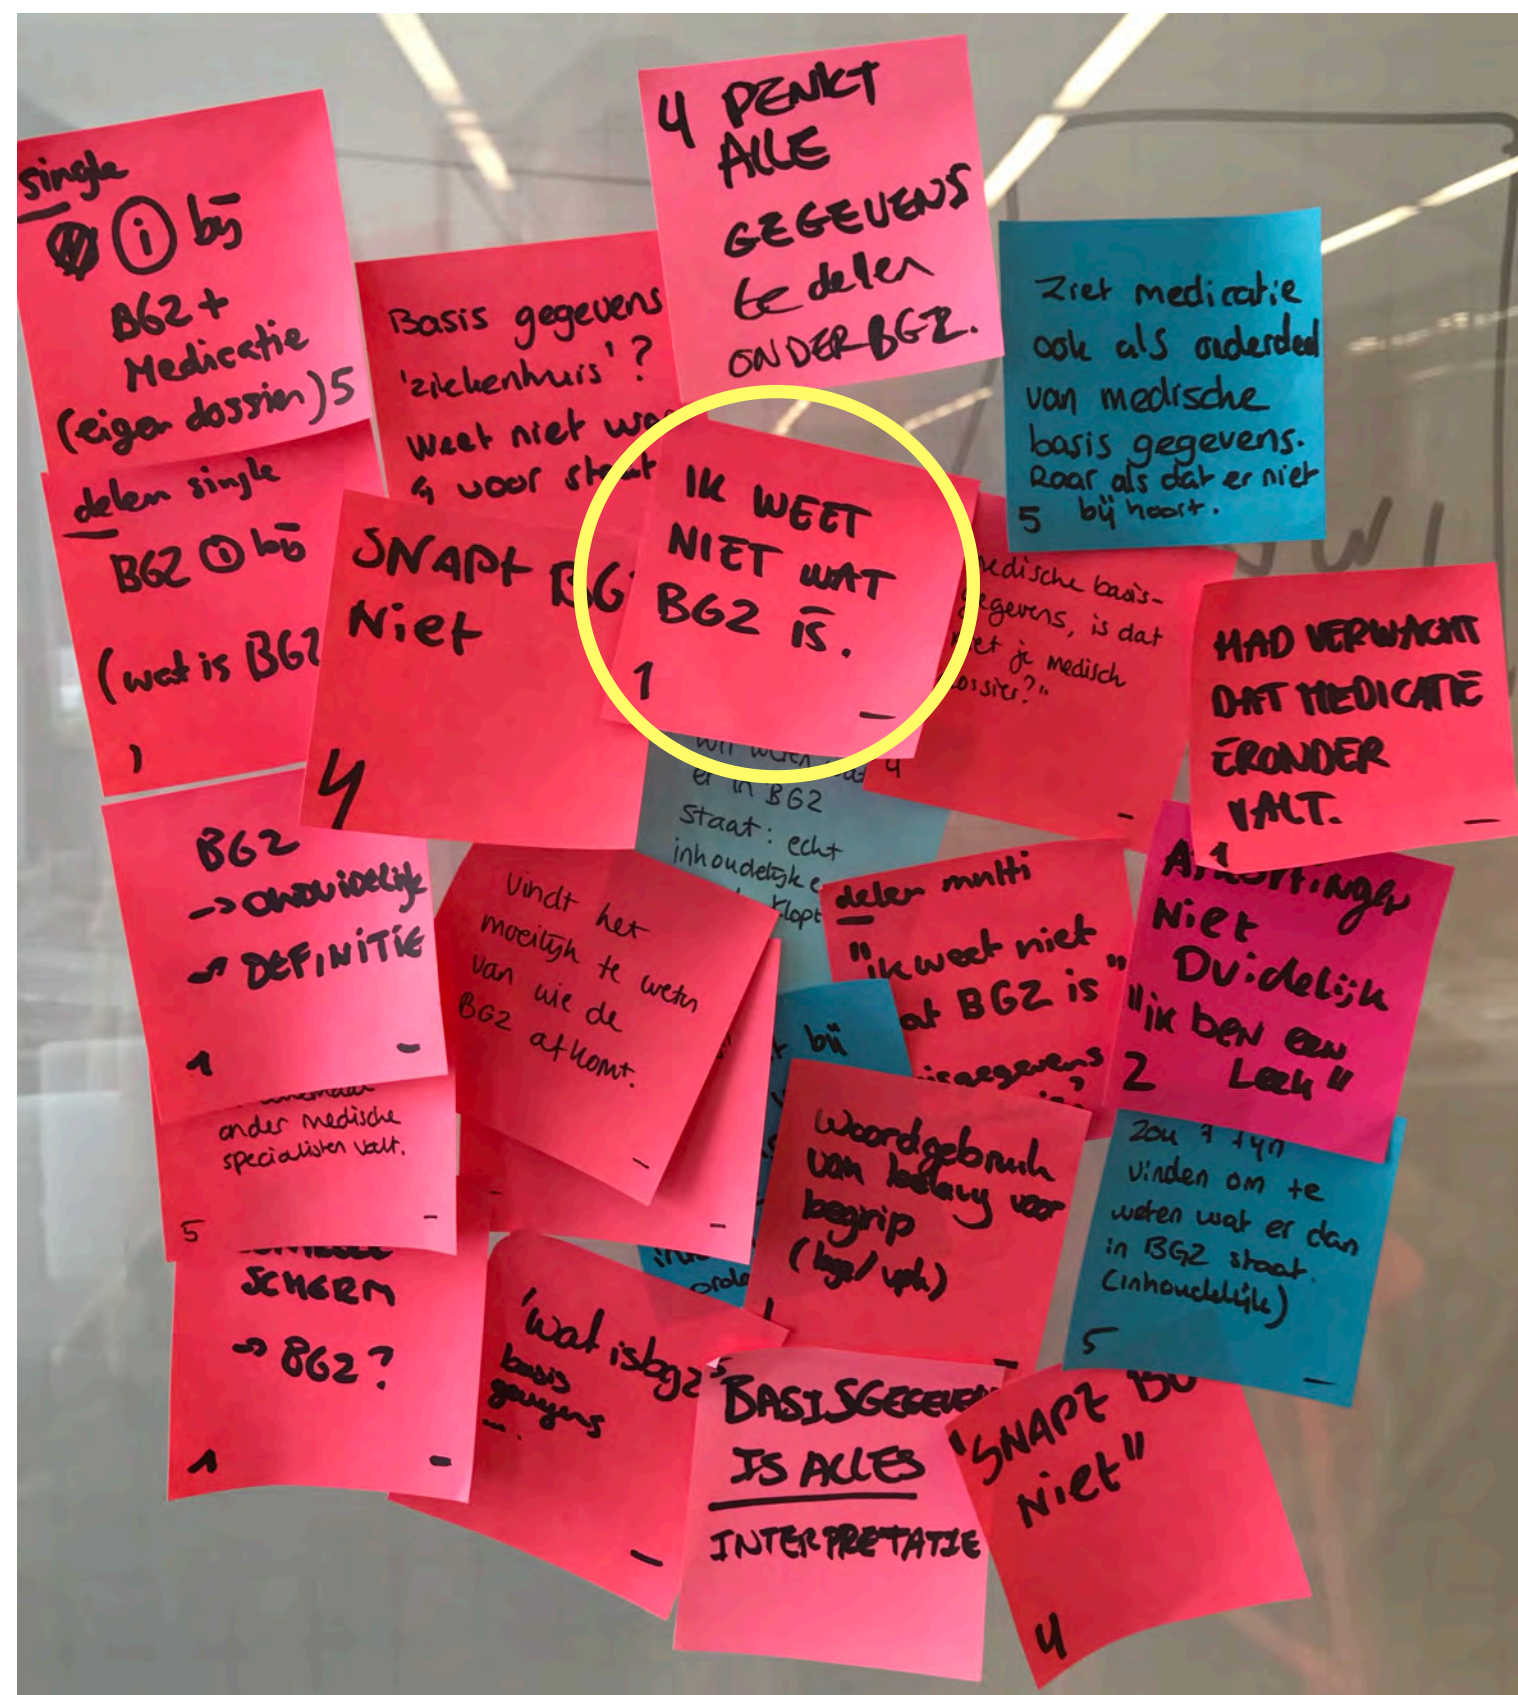 single
i bij
BGZ +
Medicatie
(eigen dossier) 5
Basis gegevens
'ziekenhuis'?
weet niet
voor staat
4 DENKT
ALLE
GEGEVENS
te delen
ONDER BGZ.
Ziet medicatie
ook als onderdeel
van medische
basis gegevens.
Raar als dat er niet
5 bij hoort.
delen single
BGZ i bij
(wat is BGZ
1
SNAPT
Niet
4
IK WEET
NIET WAT
BGZ IS.
1
medische basis-
gegevens, is dat
niet je medisch
dossier?"
4
HAD VERWACHT
DAT MEDICATIE
ERONDER
VALT.
1
er in BGZ
staat: echt
inhoudelijke
klopt
BGZ
-> ONDUIDELIJK
-> DEFINITIE
1
Vindt het
moeilijk te weten
van wie de
BGZ afkomt.
delen multi
"ik weet niet
wat BGZ is"
Afkortingen
Niet
Duidelijk
"ik ben een
2 Leek"
onder medische
specialisten valt.
5
bij
Woordgebruik
van belang voor
begrip
vinden om te
weten wat er dan
in BGZ staat.
(inhoudelijk)
5
SCHERM
-> BGZ?
1
'wat is bgz'
basis
gegevens
BASISGEGEVENS
IS ALLES
INTERPRETATIE
"SNAPT
Niet"
4